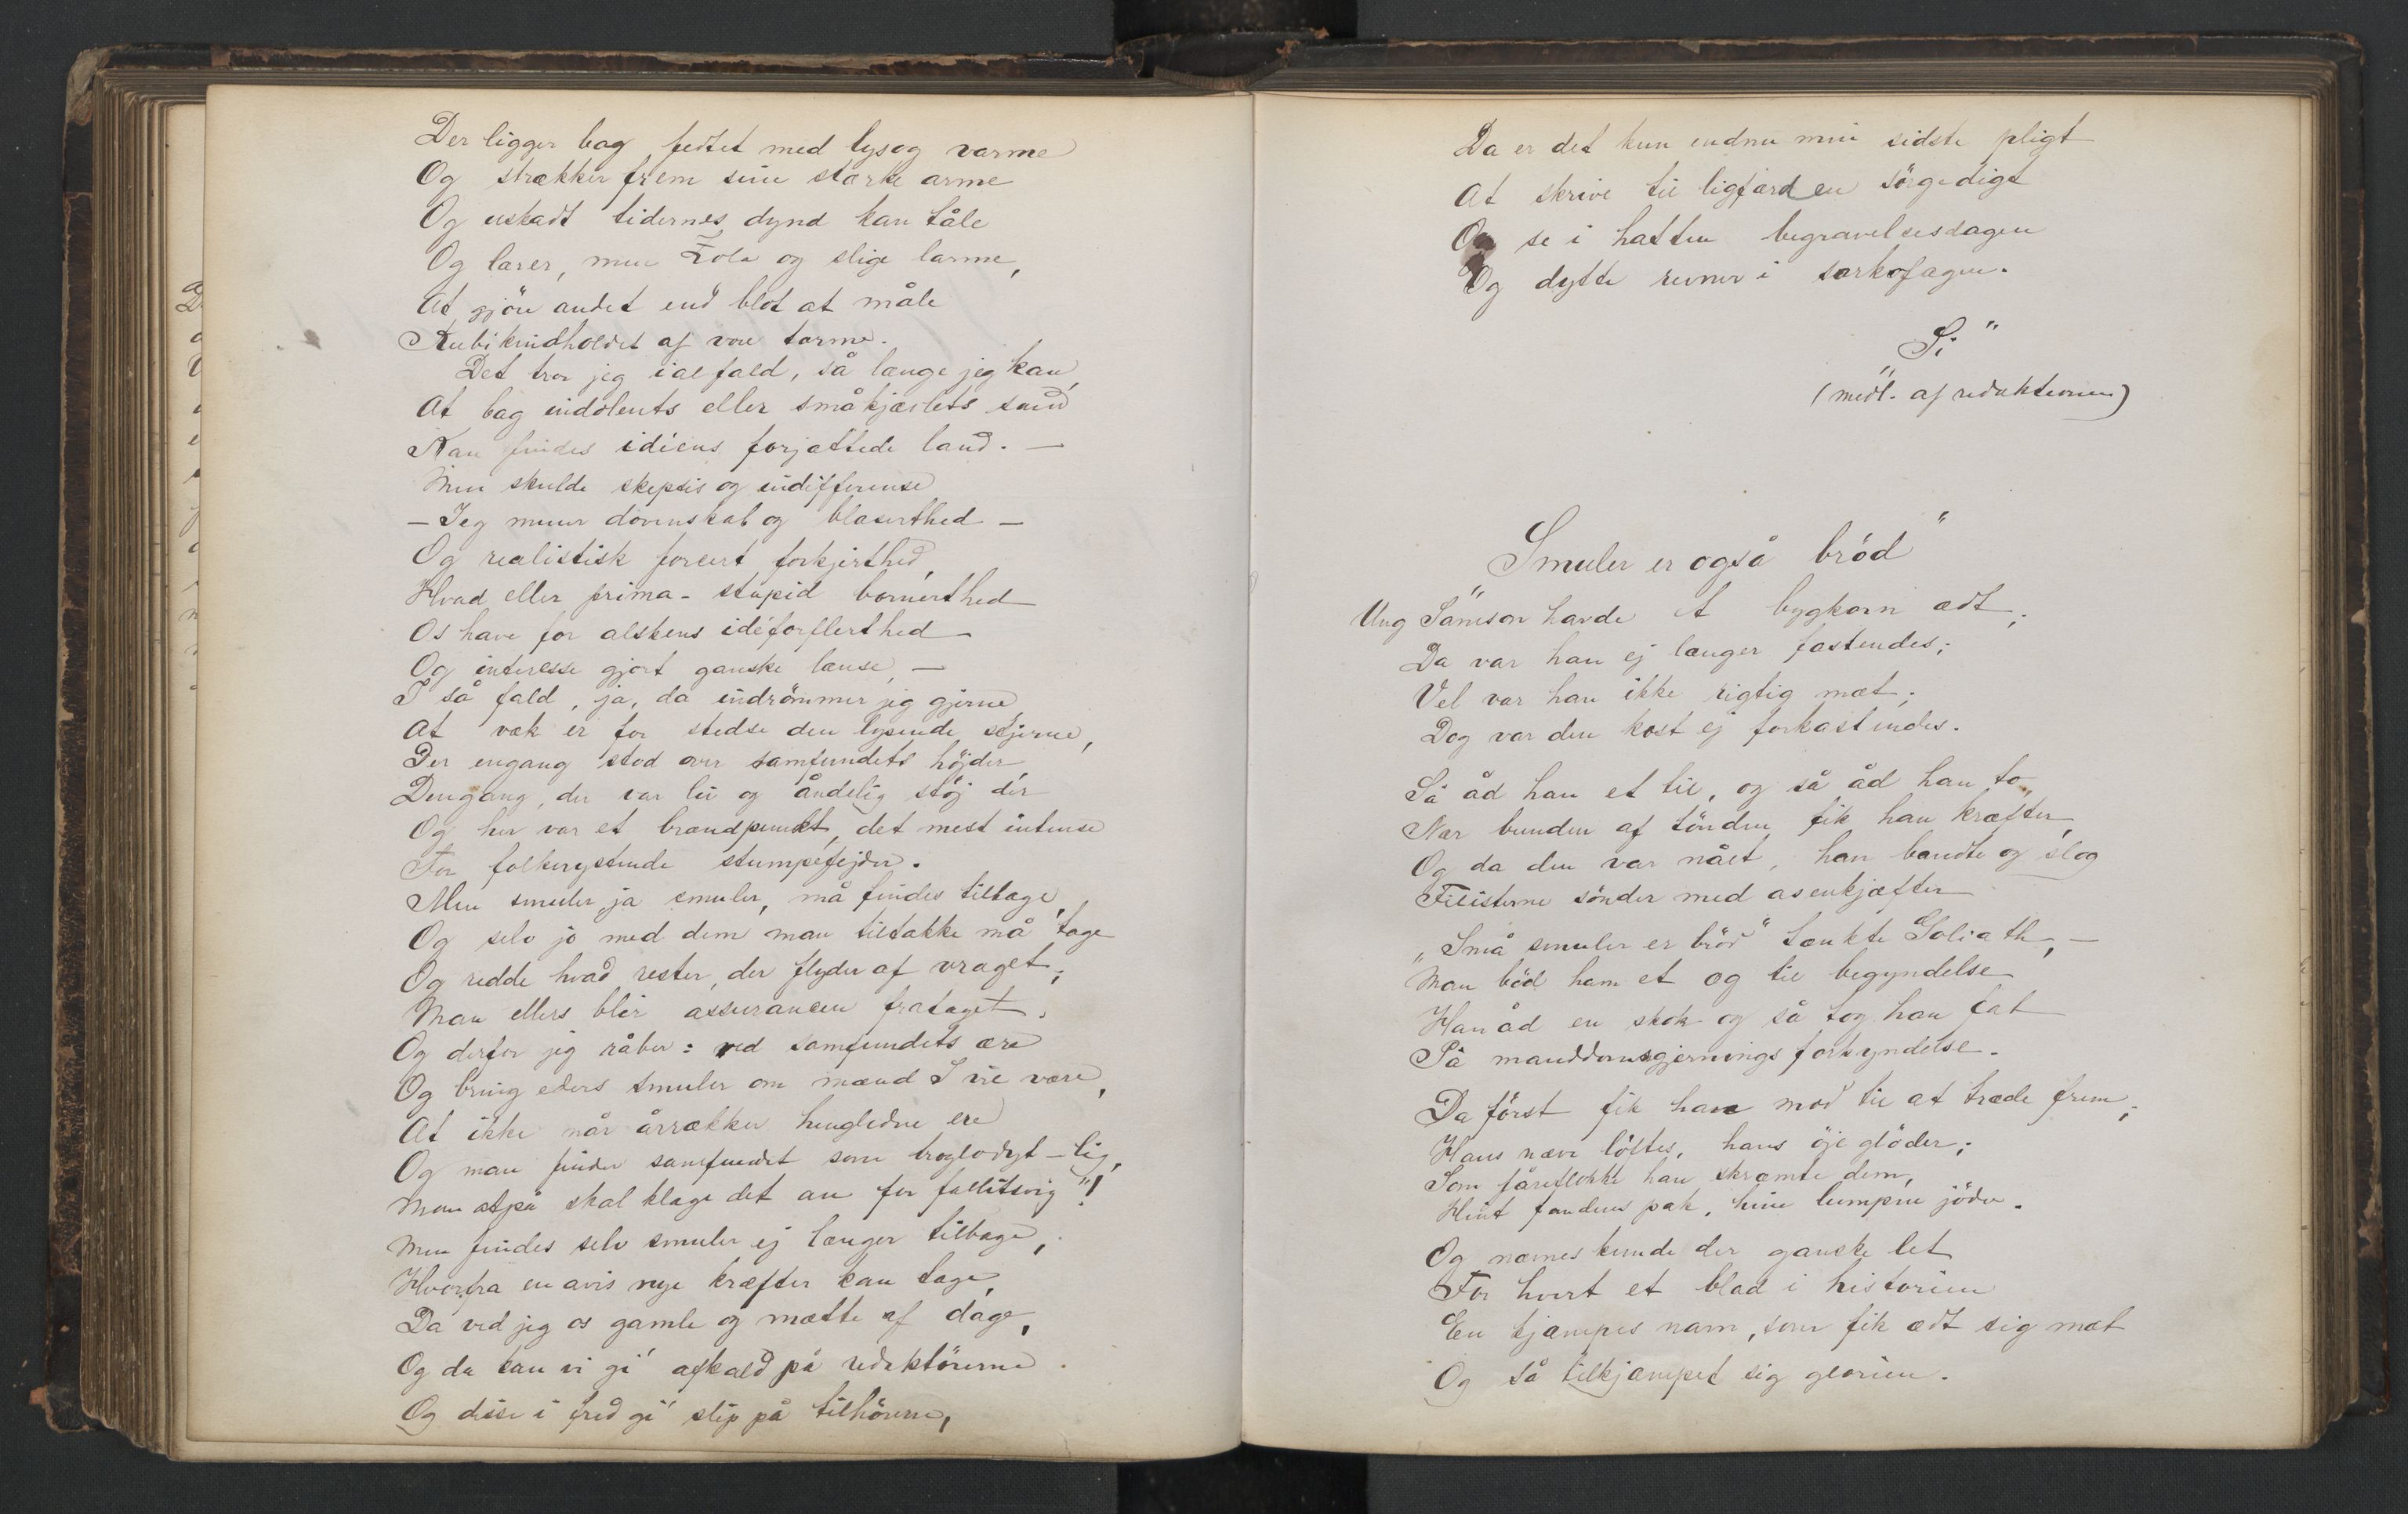 Der ligger bag fedtet med lys og varme
Og strækker frem sine stærke arme
Og uskadt tidernes dynd kan tåle
Og lærer, men Zola og slige larme,
At gjöre andet end blot at måle
Kubikindholdet af vore tarme.
Det tror jeg ialfald, så længe jeg kan,
At bag indolents eller småkjævlets sand
Kan findes idéens forjættede land. —
Men skulde skepsis og indifferense
— Jeg mener dovenskab og blaserthed —
Og realistisk forcert forkjerthed,
Hvad eller prima-stupid bornerthed
Os have for alskens idéforflerthed
Og interesse gjort ganske lænse, —
I så fald, ja, da indrömmer jeg gjerne,
At væk er for stedse den lysende stjerne,
Der engang stod over samfundets höjder,
Dengang, der var liv og åndelig stöj der
Og her var et brændpunkt, det mest intense
For folkerystende stumpefejder.
Men smuler, ja smuler, må findes tilbage,
Og selv jo med dem man tiltakke må tage
Og redde hvad rester, der flyder af vraget;
Man ellers blir assurancen frataget.
Og derfor jeg råber: ved samfundets ære
Og bring eders smuler om mænd I vil være,
At ikke når årrækker hengledne ere
Og man finder samfundet som troglodyt-lig,
Man atpå skal klage det an for fallitsvig"!
Men findes selv smuler ej længer tilbage,
Hvorfra en avis nye kræfter kan tage,
Da ved jeg os gamle og mætte af dage,
Og da kan vi gi' afkald på redaktörerne
Og disse i fred gi' slip på tilhörerne,
Da er det kun endnu min sidste pligt
At skrive til ligfærden sörgedigt
Og se i hatten begravelsesdagen
Og dytte revner i sarkofagen.
„S."
(medl. af redaktionen)
„Smuler er også bröd"
Ung Samson havde et bygkorn ædt;
Da var han ej længer fastendes;
Vel var han ikke rigtig mæt;
Dog var den kost ej forkastendes.
Så åd han et til, og så åd han to,
Nær bunden af tönden fik han kræfter,
Og da den var nået, han bandte og slog
Filisterne sönder med asenkjæfter
„Små smuler er bröd" tænkte Goliath, —
Man böd ham et og til begyndelse
Han åd en skok og så tog han fat
På manddomsgjernings forkyndelse.
Da först fik han mod til at træde frem;
Hans næve löftes, hans öje glöder;
Som fåreflokke han skræmte dem,
Hint fandens pak, hine lumpne jöder.
Og nævnes kunde der ganske let
For hvert et blad i historien
En kjæmpes navn, som fik ædt sig mæt
Og så tilkjæmpet sig glorien.